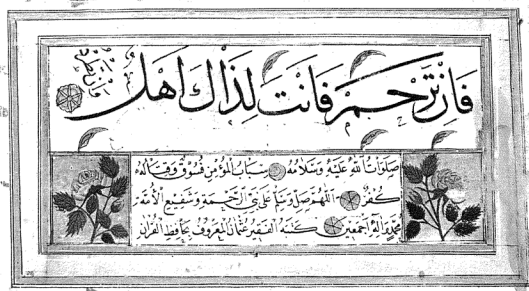 فَاِنْ تَرْحَمْ فَاَنْتَ لِذَاكَ اَهْلٌ
وَاِنْ تَطْرُدْ
صَلَوَاتُ اللهِ عَلَيْهِ وَسَلَامُهُ سِبَابُ الْمُؤْمِنِ فُسُوقٌ وَقِتَالُهُ
كُفْرٌ اَللّٰهُمَّ صَلِّ وَسَلِّمْ عَلَى الرَّحْمَةِ وَشَفِيعِ الْاُمَّةِ
مُحَمَّدٍ وَاٰلِهِ اَجْمَعِينَ كَتَبَهُ الْفَقِيرُ عُثْمَانُ الْمَعْرُوفُ بِحَافِظِ الْقُرْاٰنِ